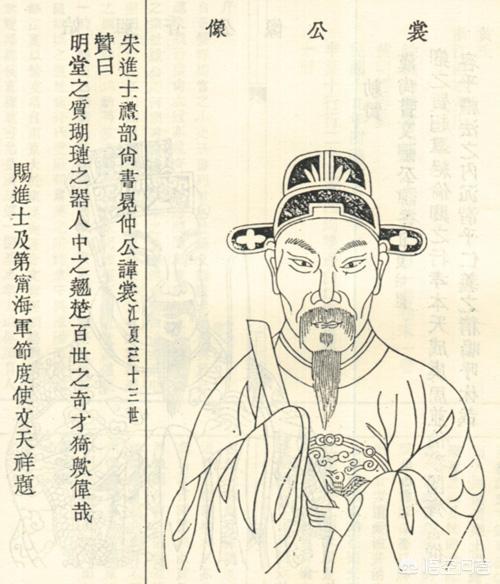 裳公像
宋進士禮部尚書冕仲公諱裳江夏十三世
贊曰
明堂之質瑚璉之器人中之翹楚百世之奇才猗歟偉哉
賜進士及第甯海軍節度使文天祥題
悟空问答